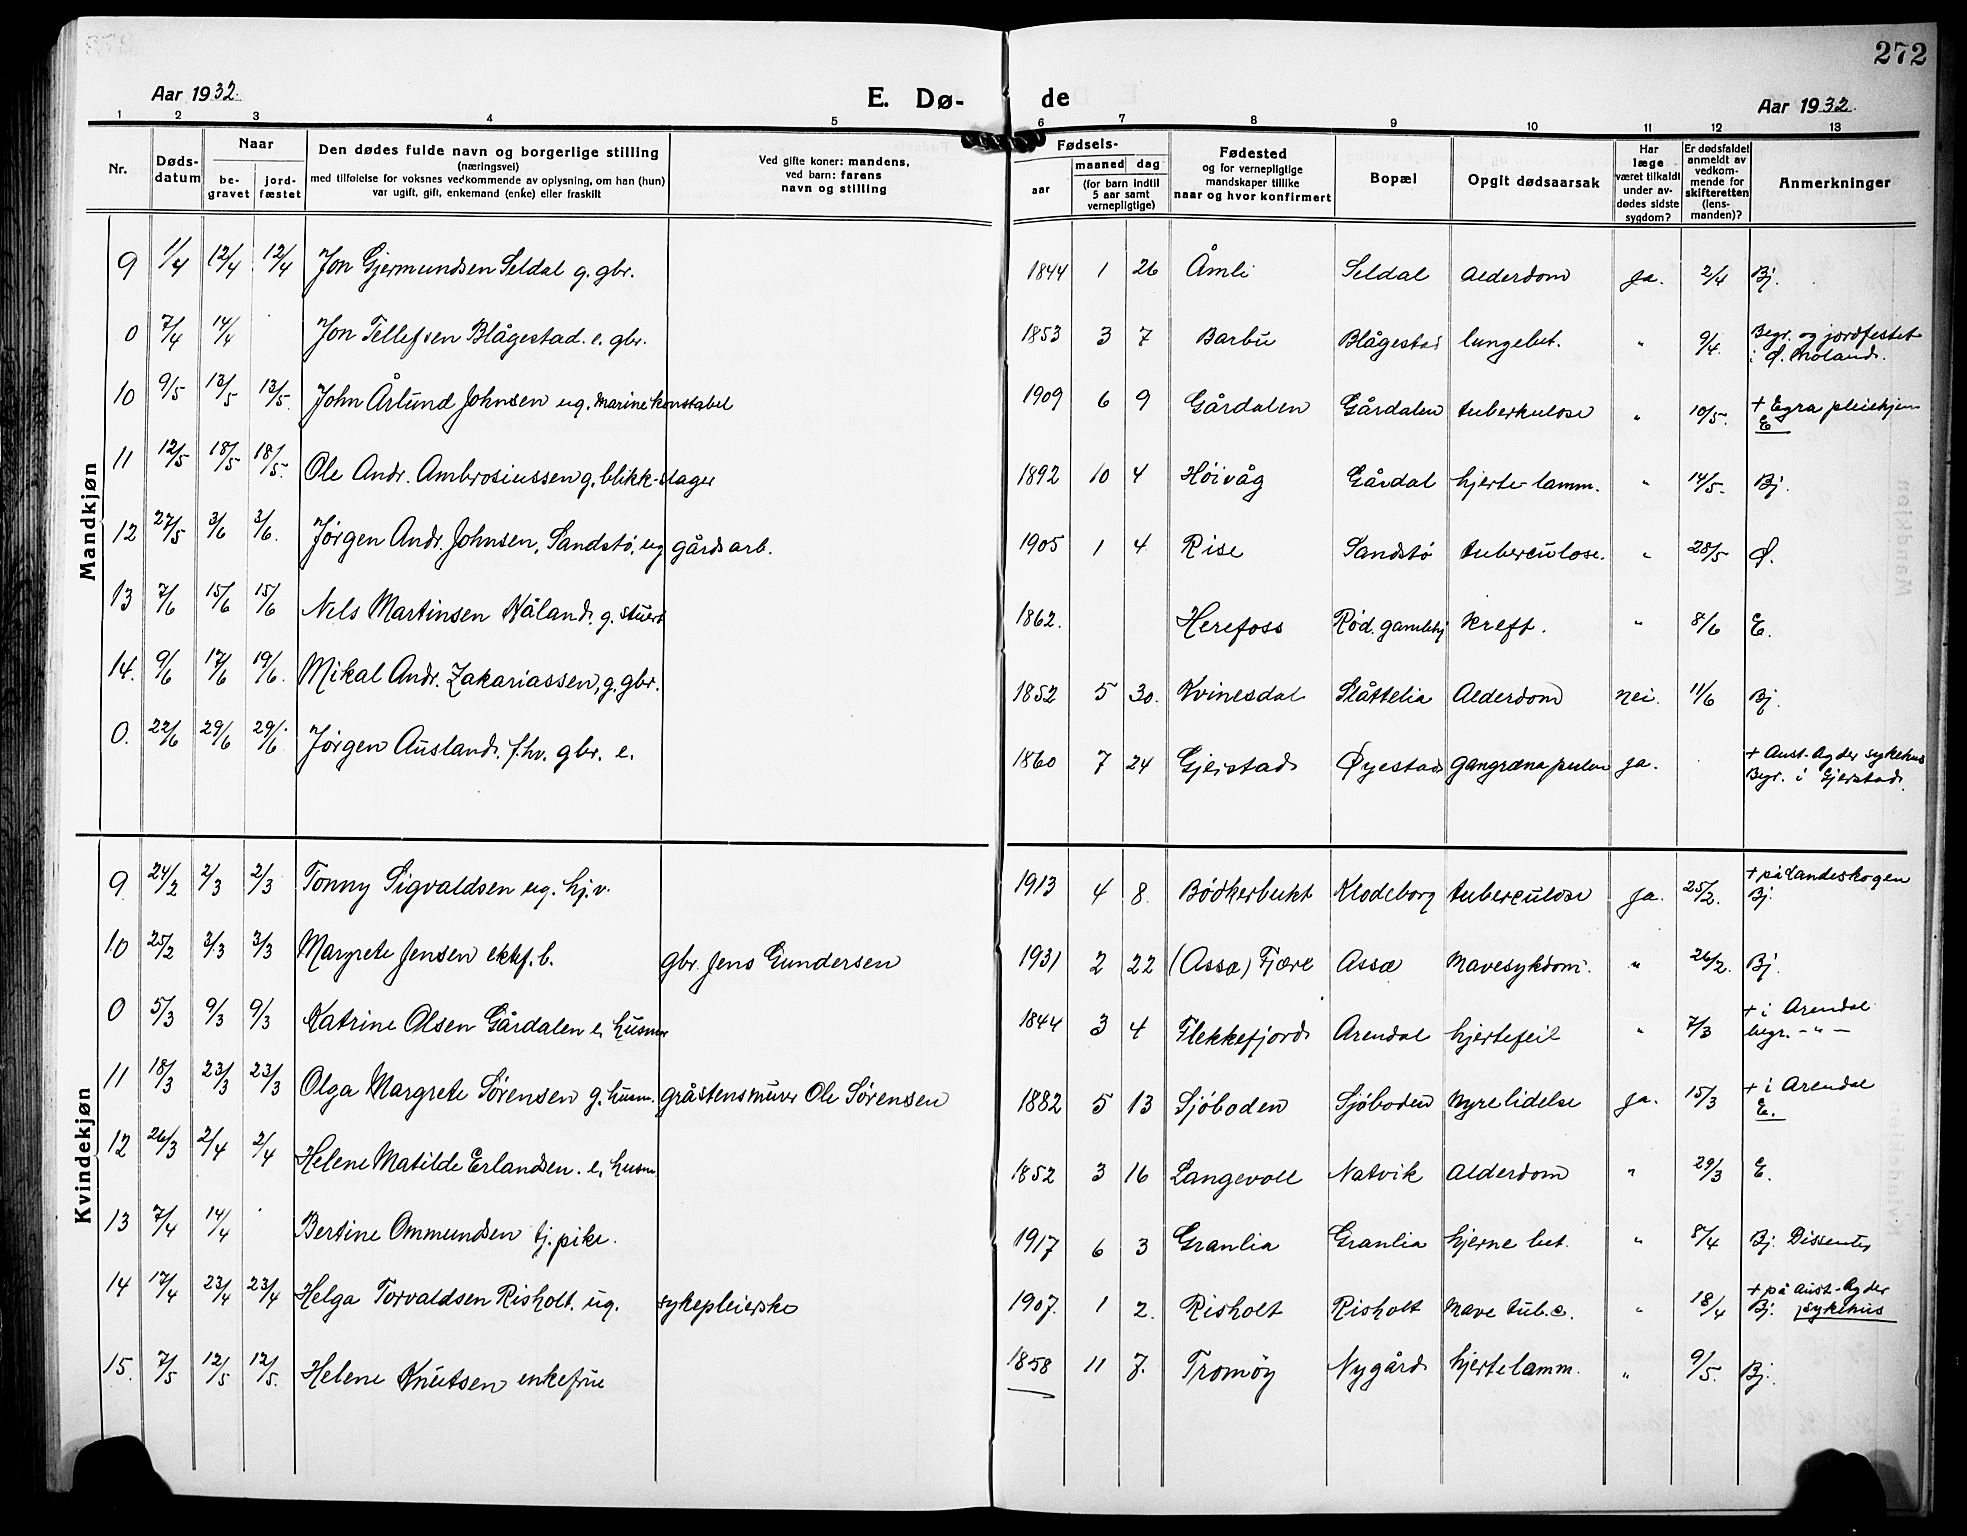 272
Aar 1932. E. Dø- de Aar 1932.
1 2 3 4 5 6 7 8 9 10 11 12 13
Nr. Dødsdatum Naar begravet jordfæstet Den dødes fulde navn og borgerlige stilling (næringsvei) med tilføielse for voksnes vedkommende av oplysning, om han (hun) var ugift, gift, enkemand (enke) eller fraskilt Ved gifte koner: mandens, ved barn: farens navn og stilling Fødsels- aar maaned dag (for barn indtil 5 aar samt vernepligtige) Fødested og for vernepligtige mandskaper tillike naar og hvor konfirmert Bopæl Opgit dødsaarsak Har læge været tilkaldt under avdødes sidste sygdom? Er dødsfaldet anmeldt av vedkommende for skifteretten (lensmanden)? Anmerkninger
Mandkjøn
9 1/4 12/4 12/4 Jon Gjermundsen Seldal g. gbr. 1844 1 26 Åmli Seldal Alderdom Ja. 2/4 Bj.
0 7/4 14/4 Jon Tellefsen Blågestad. e. gbr. 1853 3 7 Barbu Blågestad lungebet. " 9/4. Begr. og jordfestet i Ø. Moland.
10 9/5 13/5 13/5. John Årlund Johnsen ug. marinekonstabel 1909 6 9 Gårdalen Gårdalen tuberkulose " 10/5. + Egra pleiehjem E
11 12/5 18/5 18/5. Ole Andr. Ambrosiussen g. blikk-slager 1892 10 4 Høivåg Gårdal hjerte-lamm. " 14/5. Bj.
12 27/5 3/6 3/6. Jørgen Andr. Johnsen, Sandstø, ug gårdsarb. 1905 1 4 Rise Sandstø tuberculose. " 28/5 Ø.
13 7/6 15/6 15/6 Nels Martinsen Håland. g. stuert 1862. Herefoss Rød. gamlehj kreft. " 8/6 E.
14. 9/6 17/6 19/6. Mikal Andr. Zakariassen, g. gbr. 1852 5 30. Kvinesdal Slåttelia Alderdom nei. 11/6 Bj.
0. 22/6 29/6 29/6. Jørgen Ausland. f.hv. gbr. e. 1860 7 24 Gjerstad Øyestad gangræna pulm ja. + Aust-Agder sykehus Begr. i Gjerstad.
Kvindekjøn
9. 24/2 2/3 2/3 Tonny Sigvaldsen ug. hj.v. 1913 4 8. Bødkerbukt Klodeborg tuberculose ja. 25/2. + på Landeskogen Bj.
10 25/2 3/3 3/3 Margrete Jensen ektef. b. gbr. Jens Gundersen 1931 2 22 (Assa) Fjære Assa Mavesykdom. " 26/2. Bj.
0 5/3 9/3 9/3 Katrine Olsen Gårdalen e. husmor 1844 3 4 Flekkefjord Arendal hjertefeil " 7/3 + i Arendal begr. - " -
11 18/3 23/3 23/3 Olga Margrete Sørensen g. husm. gråstensmurer Ole Sørensen 1882 5 13 Sjøboden Sjøboden Nyrelidelse ja. 15/3 + i Arendal E.
12 26/3 2/4 2/4 Helene Matilde Erlandsen. e. husm. 1852 3 16 Langevoll Natvik Alderdom " 29/3 E.
13 7/4 14/4 Bertine Ommundsen tj. pike. 1917 6 3 Granlia Granlia hjerne bet. " 8/4 Bj. Dissenter
14 17/4 23/4 23/4 Helga Torvaldsen Risholt. ug. sykepleierske 1907. 1 2. Risholt Risholt mave tub.c. " 18/4 + på Aust-Agder Bj. sykehus
15. 7/5 12/5 12/5. Helene Knutsen enkefrue 1858 11 7. Tromøy Nygård hjertelamm. " 9/5. Bj.